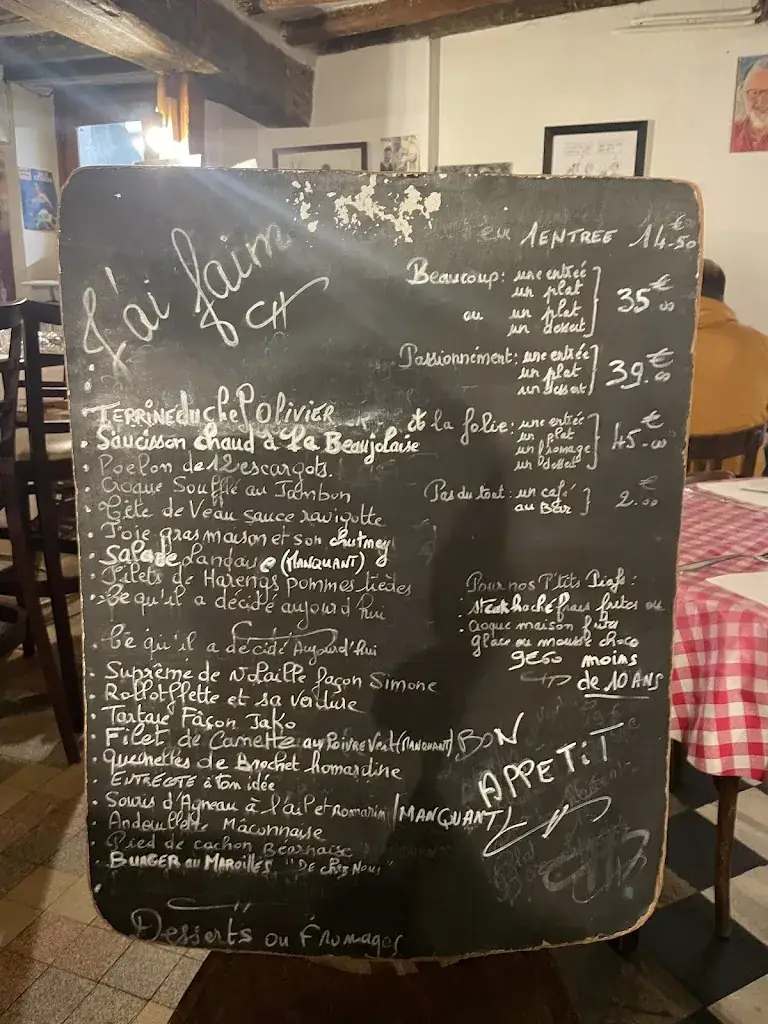 J'ai faim
TERRINE du chef OLIVIER
• Saucisson chaud à la Beaujolaise
• Poelon de 12 escargots.
• Croque Soufflé au Jambon
• Tête de Veau sauce ravigotte
• Foie gras maison et son chutney
• Salade Landaise (MANQUANT)
• Filets de Harengs pommes tièdes
• Ce qu'il a décidé aujourd'hui
• Ce qu'il a décidé Aujourd'hui
• Suprême de volaille façon Simone
• Rollotflette et sa verdure
• Tartare Façon Jako
• Filet de Canette au POIVRE Vert (MANQUANT)
• Quenelles de Brochet homardine
• ENTRECOTE à ton idée
• Souris d'Agneau à l'ail et Romarin (MANQUANT)
• Andouillette Mâconnaise
• Pied de cochon Béarnaise
• BURGER au MAROILLES "DE CHEZ NOUS"
Desserts ou Fromages
1 ENTREE 14.50€
Beaucoup: une entrée
un plat
ou un plat
un dessert
35€.00
Passionnément: une entrée
un plat
un dessert
39.€
à la folie: une entrée
un plat
un fromage
un dessert
45.€00
Pas du tout: un café
au BAR
2.€00
Pour nos P'tits Piafs:
• steak haché frais frites ou
• croque maison frites
glace ou mousse choco
9€50 moins
de 10 ANS
BON
APPETIT